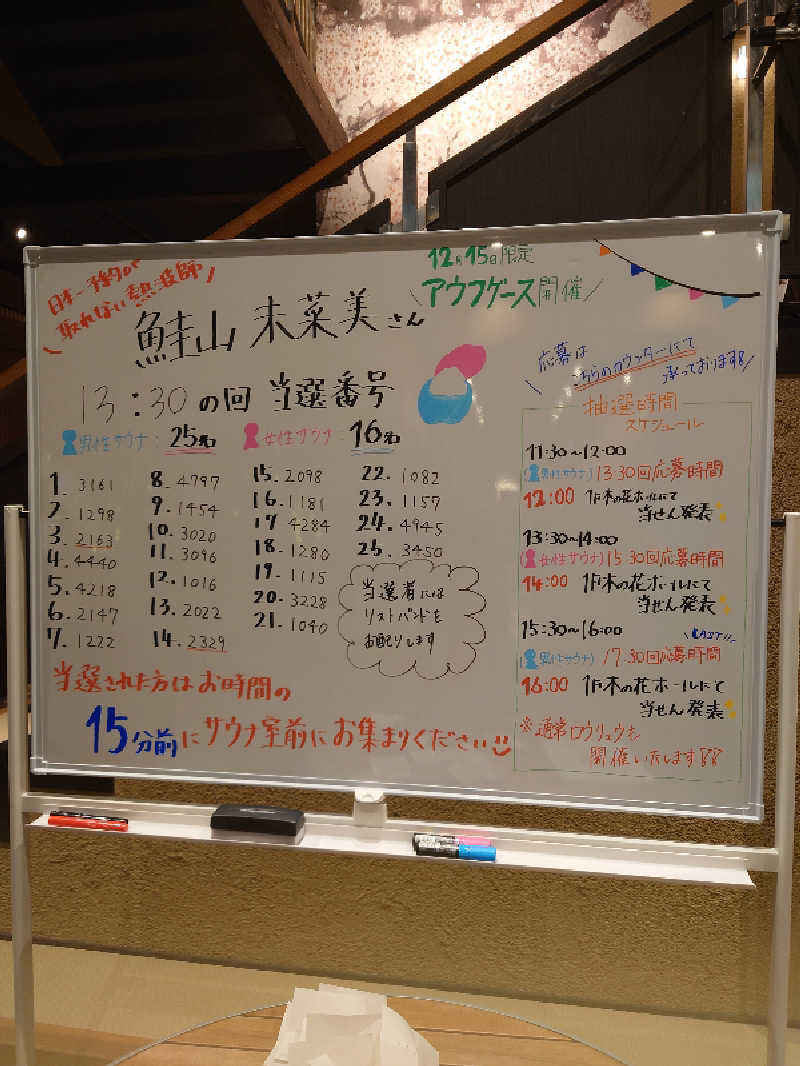 日本一予約が
取れない熱波師
12月15日限定
アウフグース開催
鮭山 未菜美さん
13:30の回 当選番号
男性サウナ：25名
女性サウナ：16名
1. 3161
2. 1298
3. 2163
4. 4440
5. 4218
6. 2147
7. 1222
8. 4797
9. 1454
10. 3020
11. 3096
12. 1016
13. 2022
14. 2329
15. 2098
16. 1181
17. 4284
18. 1280
19. 1115
20. 3228
21. 1040
22. 1082
23. 1157
24. 4945
25. 3450
当選者には
リストバンドを
お配りします
当選された方はお時間の
15分前にサウナ室前にお集まりください
応募は
こちらのカウンターにて
承っております
抽選時間
スケジュール
11:30〜12:00
(男性サウナ) 13:30回応募時間
12:00 木の花ホールにて
当せん発表
13:30〜14:00
(女性サウナ) 15:30回応募時間
14:00 木の花ホールにて
当せん発表
15:30〜16:00
(男性サウナ) 17:30回応募時間
16:00 木の花ホールにて
当せん発表
※通常ロウリュウも
開催いたします